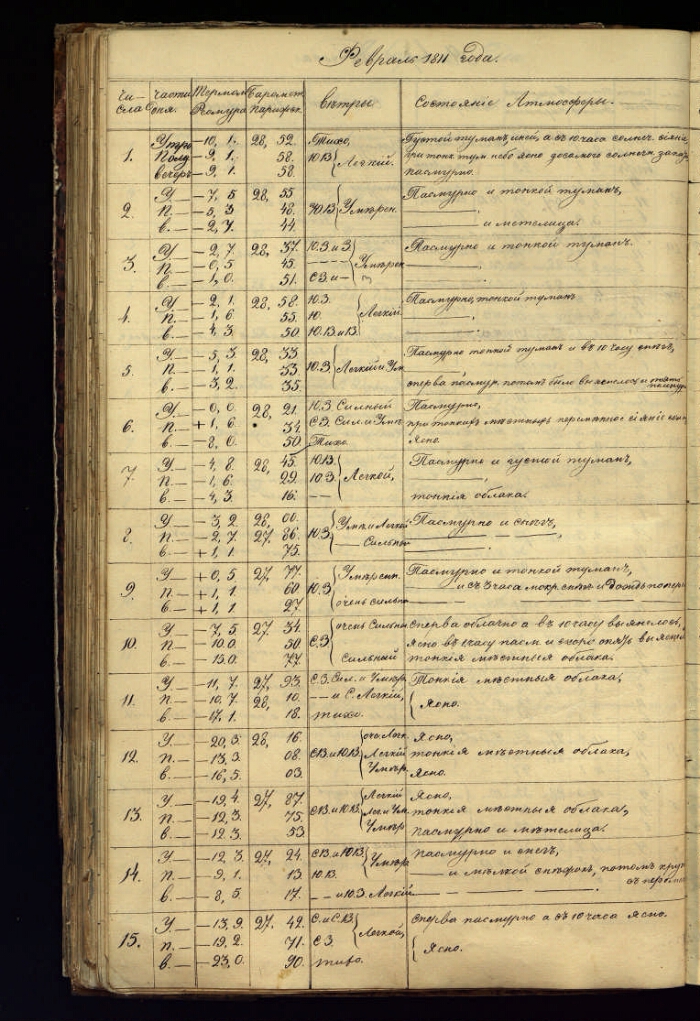 Февраль 1811 года.
Чи- Части Термом Барометр Вѣтры Состоянiе Атмосферы.
сла дня. Реомюра
1. Утро —10, 1. 28, 52. Тихо, Густой туманъ, иней, а съ 10 часа солнеч. сiянiе
Полд — 9, 1. 58. Ю.В. Легкiй. при тонк. тум. небо ясно до самого солнечн. заход.
вечеръ — 9, 1. 58. пасмурно.
2. У. — 7, 5 28, 55 Пасмурно и тонкой туманъ,
п. — 5, 3 48. Ю.В. Умѣрен. ———,
в. — 2, 7. 44. ——— и метелица.
3. У. — 2, 7 28, 37. Ю.З. и З Пасмурно и тонкой туманъ.
п. — 0, 5 45. ——— Умѣрен ———,
в. — 1, 0. 51. С.З. и — ———.
4. У. — 2, 1. 28, 58. Ю.З. Пасмурно, тонкой туманъ
п. — 1, 6 55. Ю. Легкiй ———,
в. — 4, 3. 50. Ю.В. и В. ———.
5. У. — 5, 3 28, 33 Пасмурно тонкой туманъ и въ 10 часу снѣгъ,
п. — 1, 1. 33. Ю.З. Легкiй и Ум. ———
в. — 3, 2. 35. сперва пасмур. потомъ было выяснелось и опять пасмур.
6. У. — 0, 0. 28, 21. Ю.З. Сильный Пасмурно,
п. + 1, 6 34. С.З. Сил. и Умѣ при тонкихъ мѣстныхъ перемѣнное сiянiе
в. — 8, 0. 50 Тихо. Ясно.
7. У. — 4, 8. 28, 45. Ю.В. Пасмурно и густой туманъ,
п. — 1, 6 29. Ю.З. Легкой, ———,
в. — 4, 3. 16. —— тонкiя облака.
8. У. — 3, 2. 28, 00. Умѣ. и Легкiй Пасмурно и снѣгъ,
п. — 2, 7. 27, 86. Ю.З ——— Сильный ———,
в. + 1, 1 75. ———.
9. У + 0, 5 27, 77. Умѣрен. Пасмурно и тонкой туманъ,
п. + 1, 1. 60 Ю.З ——— и съ 3 часа мокр. снѣгъ и дождь
в. + 1, 1 27. очень сильно
10. У. — 7, 5. 27, 34. очень Сильный сперва облачно а въ 10 часу выяснелось,
п. — 10.0. 50. С.З Ясно въ 1 часу пасм. и скоро опять выяснел
в. — 15.0. 77. Сильный тонкiя мѣстныя облака.
11. У. — 11, 7. 27, 93. С.З. Сил. и Умѣр. Тонкiя мѣстныя облака,
п. — 10, 7 28, 10. — и С. Легкiй, Ясно.
в. — 17, 1. 18. тихо.
12. У. — 20, 3. 28, 16. оч. Легк. Ясно,
п. — 13, 3 08. С.В. и Ю.В. Легкiй тонкiя мѣстныя облака,
в. — 16, 5. 03. Умѣр. Ясно.
13. У. — 19, 4. 27, 87. Легкiй Ясно,
п. — 12, 3. 75. С.В. и Ю.В. Лег. и Ум. тонкiя мѣстныя облака,
в. — 12. 3. 53. Умѣр. пасмурно и мѣтелица.
14. У. — 12, 3. 27, 24. С.В. и Ю.В. пасмурно и снегъ,
п. — 9, 1. 13 Ю.В. Умѣр. ——— и мѣлкой снѣжокъ, потомъ
в. — 8, 5 17. — — и Ю.З. Легкiй ———.
15. У. — 13, 9. 27. 42. С. и С.В. сперва пасмурно а съ 10 часа Ясно.
п. — 19, 2. 71. С.З. Легкой, Ясно.
в. — 23, 0. 90. тихо.